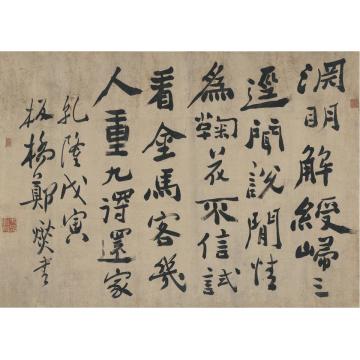 渊明解綬歸三
逕聞說閒情
為鞠花不信試
看金馬客幾
人重九得還家
乾隆戊寅
板橋鄭燮書